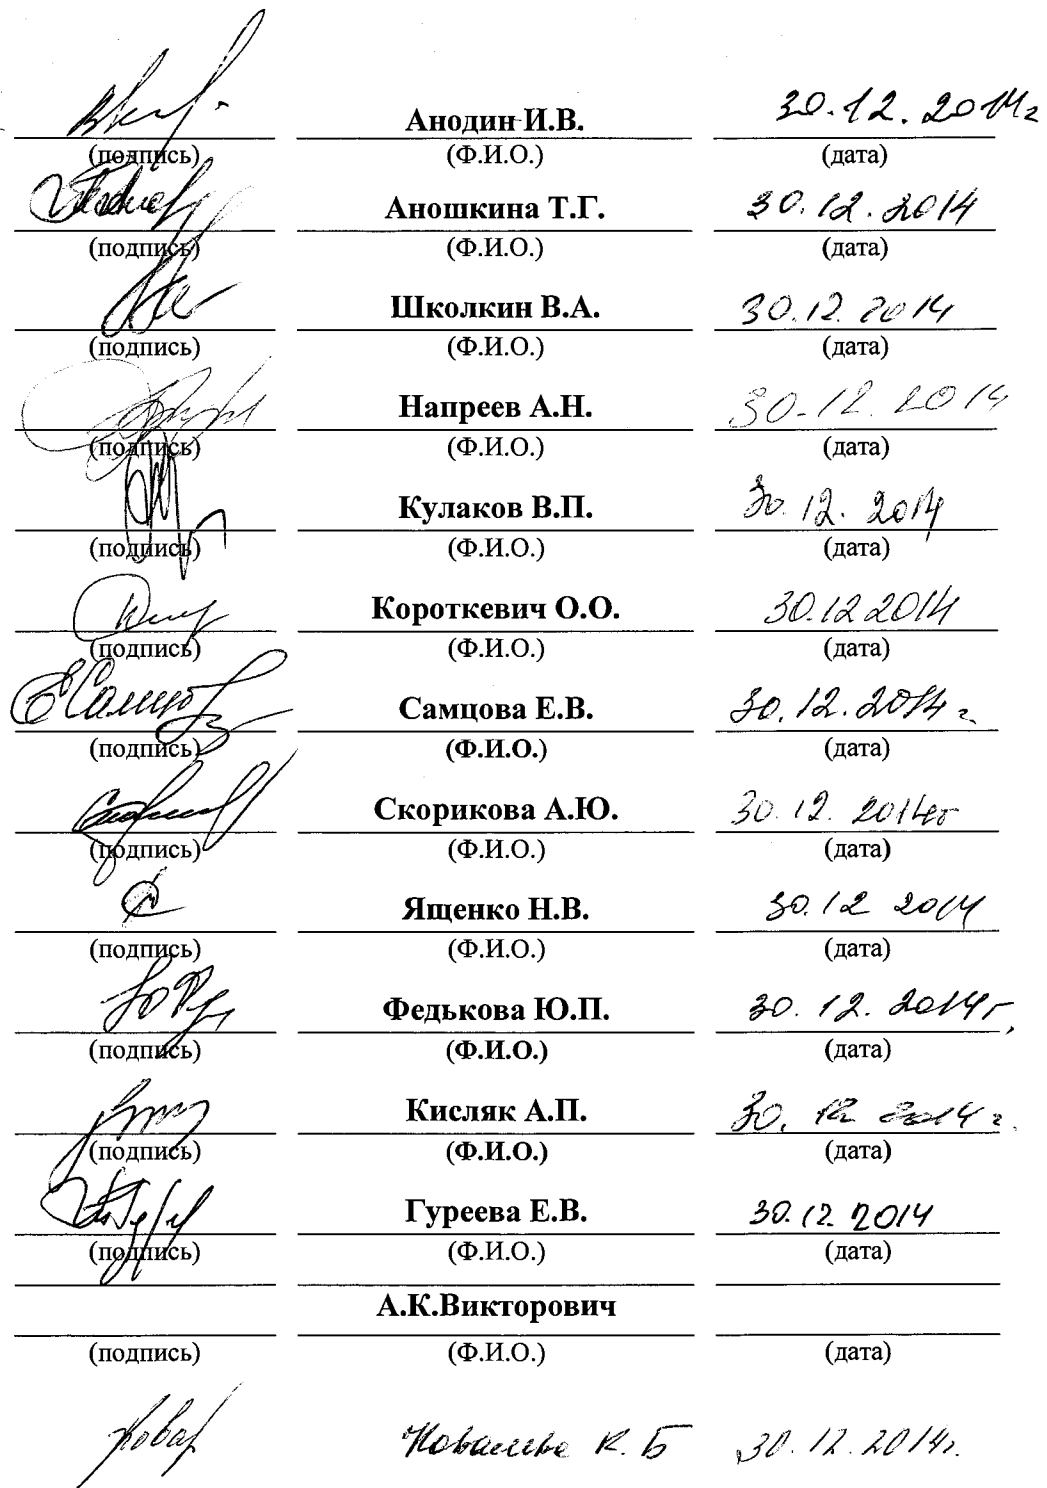 Анодин И.В. 30.12.2014г
(подпись) (Ф.И.О.) (дата)
Аношкина Т.Г. 30.12.2014
(подпись) (Ф.И.О.) (дата)
Школкин В.А. 30.12.2014
(подпись) (Ф.И.О.) (дата)
Напреев А.Н. 30.12.2014
(подпись) (Ф.И.О.) (дата)
Кулаков В.П. 30.12.2014
(подпись) (Ф.И.О.) (дата)
Короткевич О.О. 30.12 2014
(подпись) (Ф.И.О.) (дата)
Самцова Е.В. 30.12.2014 г.
(подпись) (Ф.И.О.) (дата)
Скорикова А.Ю. 30.12.2014г
(подпись) (Ф.И.О.) (дата)
Ященко Н.В. 30.12 2014
(подпись) (Ф.И.О.) (дата)
Федькова Ю.П. 30.12.2014г.
(подпись) (Ф.И.О.) (дата)
Кисляк А.П. 30.12 2014г.
(подпись) (Ф.И.О.) (дата)
Гуреева Е.В. 30.12.2014
(подпись) (Ф.И.О.) (дата)
А.К.Викторович
(подпись) (Ф.И.О.) (дата)
К.Б 30.12.2014г.